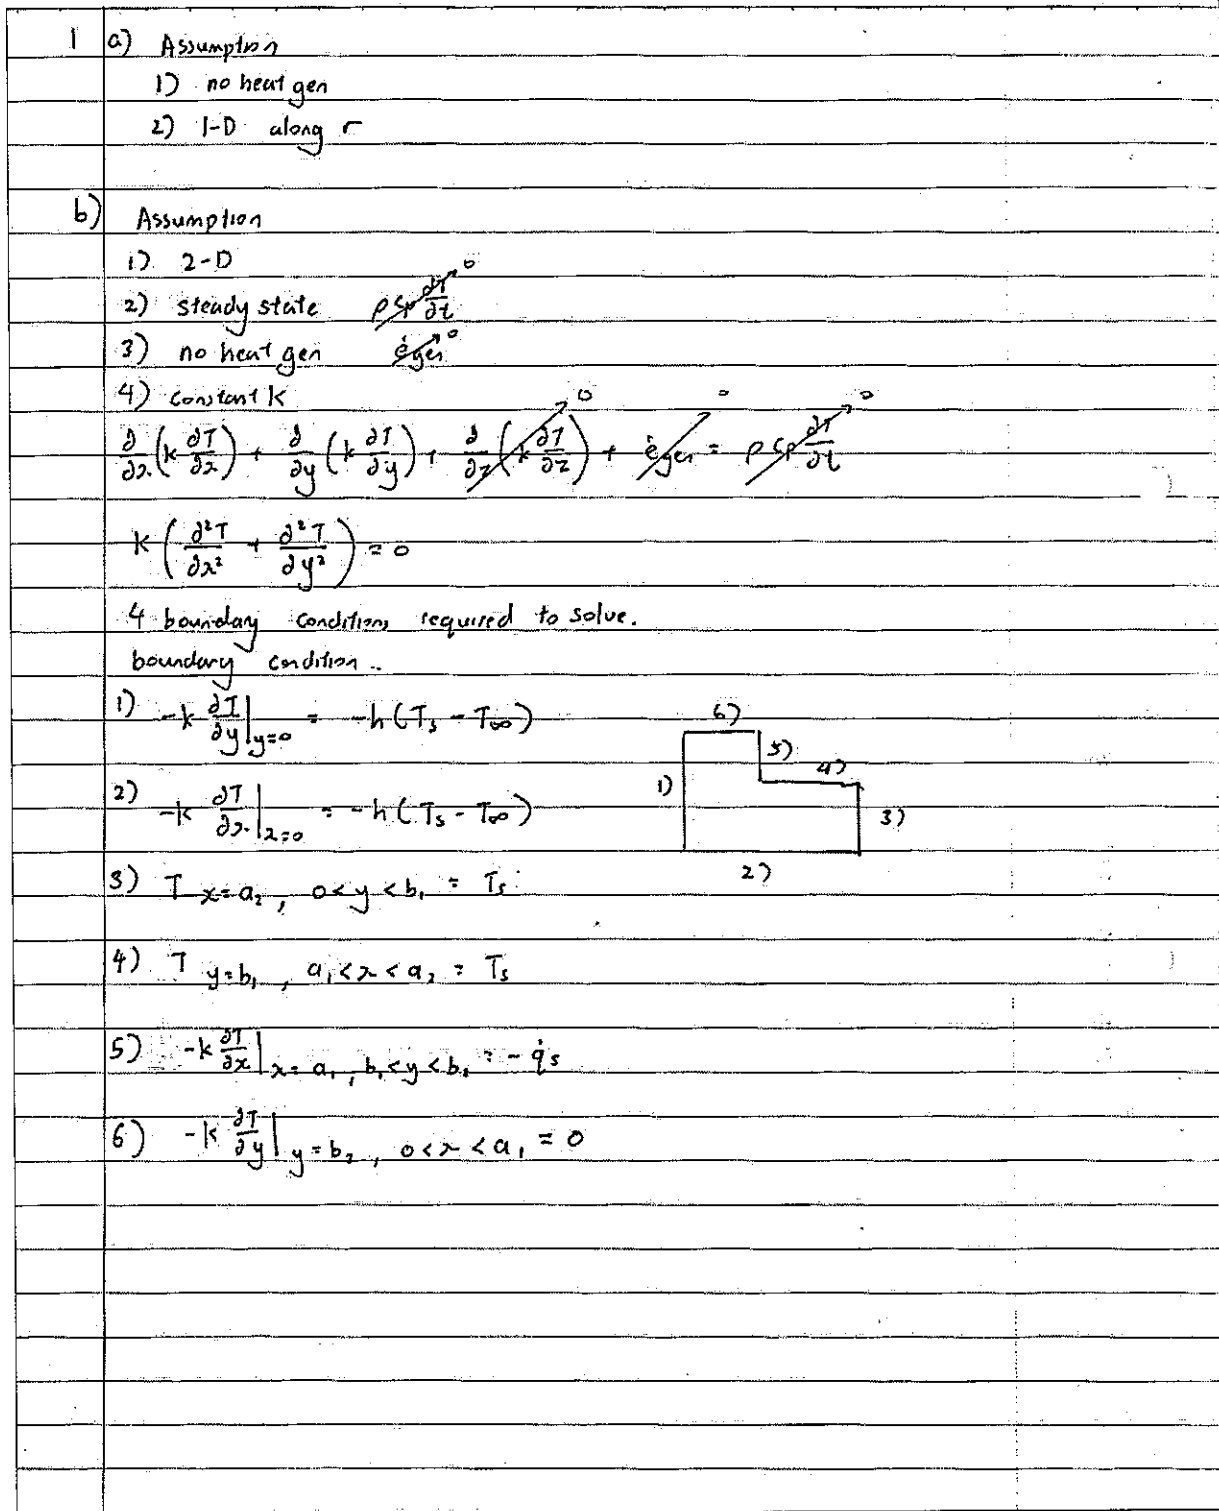 1 a) Assumption
1) no heat gen
2) 1-D along r
b) Assumption
1) 2-D
2) steady state ρcp ∂T/∂t → 0
3) no heat gen ėgen → 0
4) constant k
∂/∂x (k ∂T/∂x) + ∂/∂y (k ∂T/∂y) + ∂/∂z (k ∂T/∂z) → 0 + ėgen → 0 = ρcp ∂T/∂t → 0
k (∂²T/∂x² + ∂²T/∂y²) = 0
4 boundary conditions required to solve.
boundary condition..
1) -k ∂T/∂y |y=0 = -h(Ts - T∞)
2) -k ∂T/∂x |x=0 = -h(Ts - T∞)
6)
5)
4)
1)
3)
2)
3) T x=a₂, 0<y<b₁ = Ts
4) T y=b₁, a₁<x<a₂ = Ts
5) -k ∂T/∂x |x=a₁, b₁<y<b₂ = -q̇s
6) -k ∂T/∂y |y=b₂, 0<x<a₁ = 0